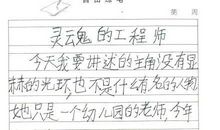 灵云鬼的工程师
今天我要讲述的主角没有显
赫的光环,也不是什么有名的人物
她只是一个幼儿园的老师,今年